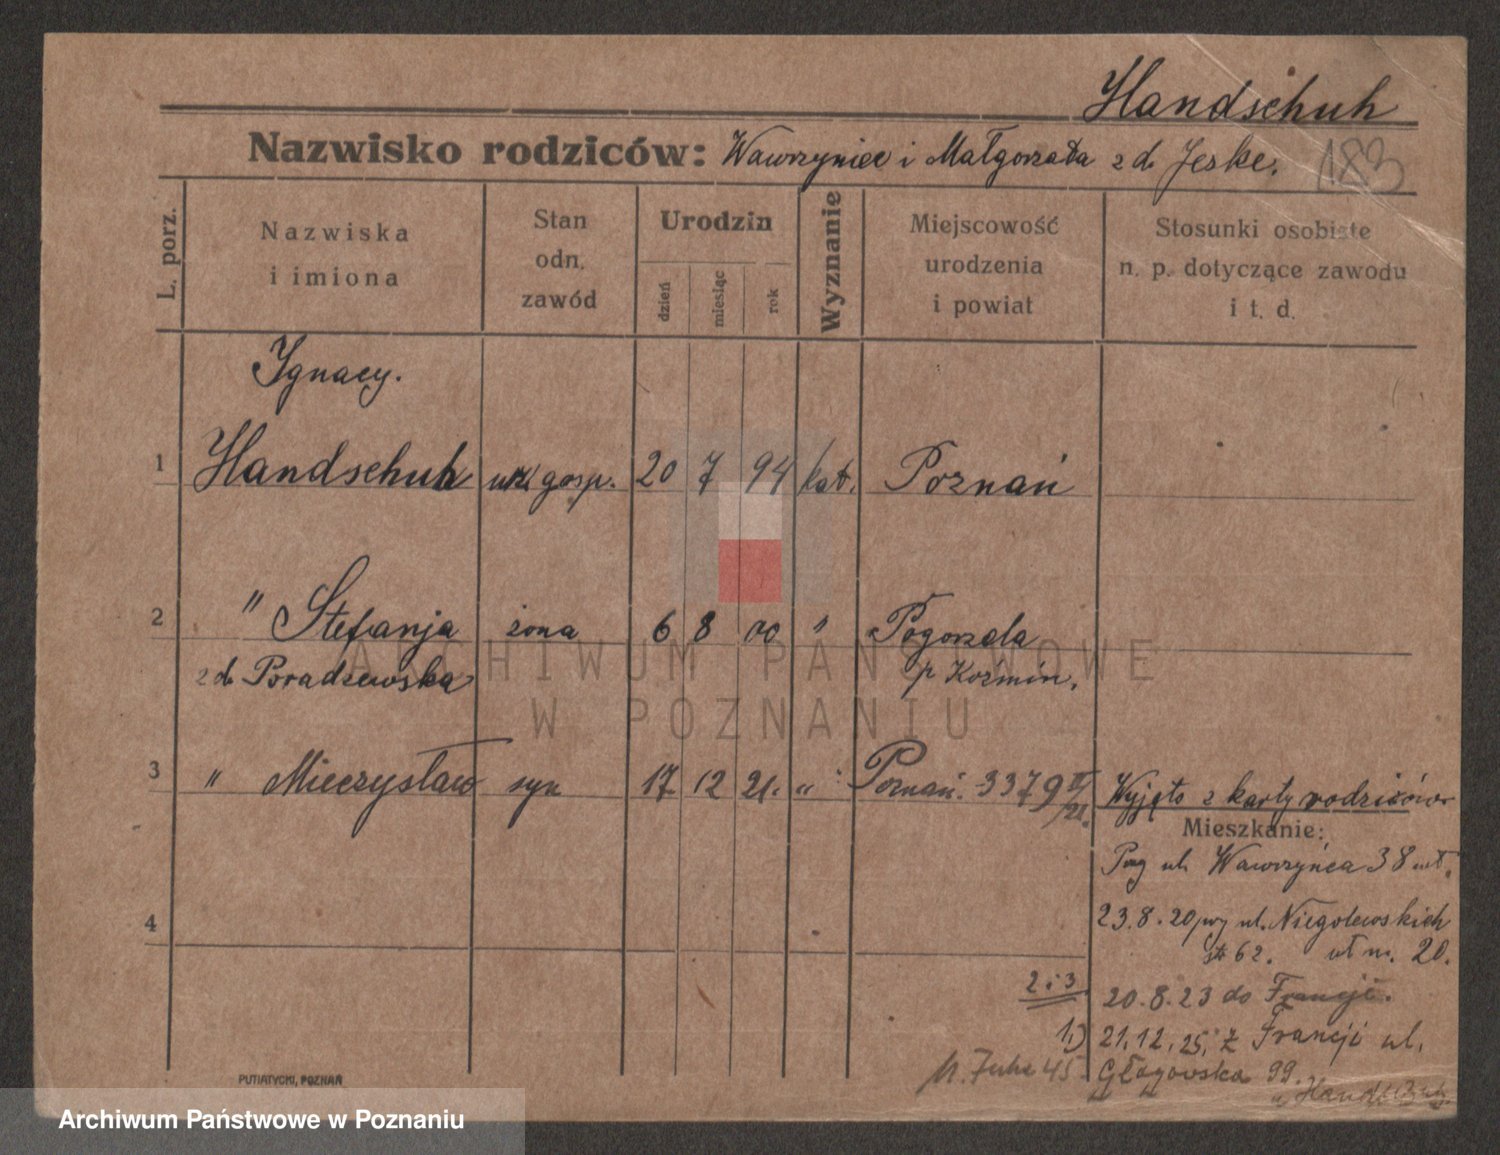 Handschuh
Nazwisko rodziców: Wawrzyniec i Małgorzata z d. Jeske.
183
L. porz.
Nazwiska
i imiona
Stan
odn.
zawód
Urodzin
dzień
miesiąc
rok
Wyznanie
Miejscowość
urodzenia
i powiat
Stosunki osobiste
n. p. dotyczące zawodu
i t. d.
Ignacy.
1 Handschuh urz. gosp. 20 7 94 kat. Poznań
2 " Stefanja żona 6 8 00 " Pogorzela
z d. Poradzewska p Koźmin.
3 " Mieczysław syn 17 12 21. " Poznań. 3379 II/21. Wyjęto z karty rodziców
Mieszkanie:
ul. Wawrzyńca 38
4
23.8.20 ul. Niegolewskich
62. 20.
2 i 3 20.8.23 do Francji.
1.) 21.12.25. z Francji ul.
Głogowska 99.
45
PUTIATYCKI, POZNAŃ
ARCHIWUM PAŃSTWOWE
W POZNANIU
Archiwum Państwowe w Poznaniu